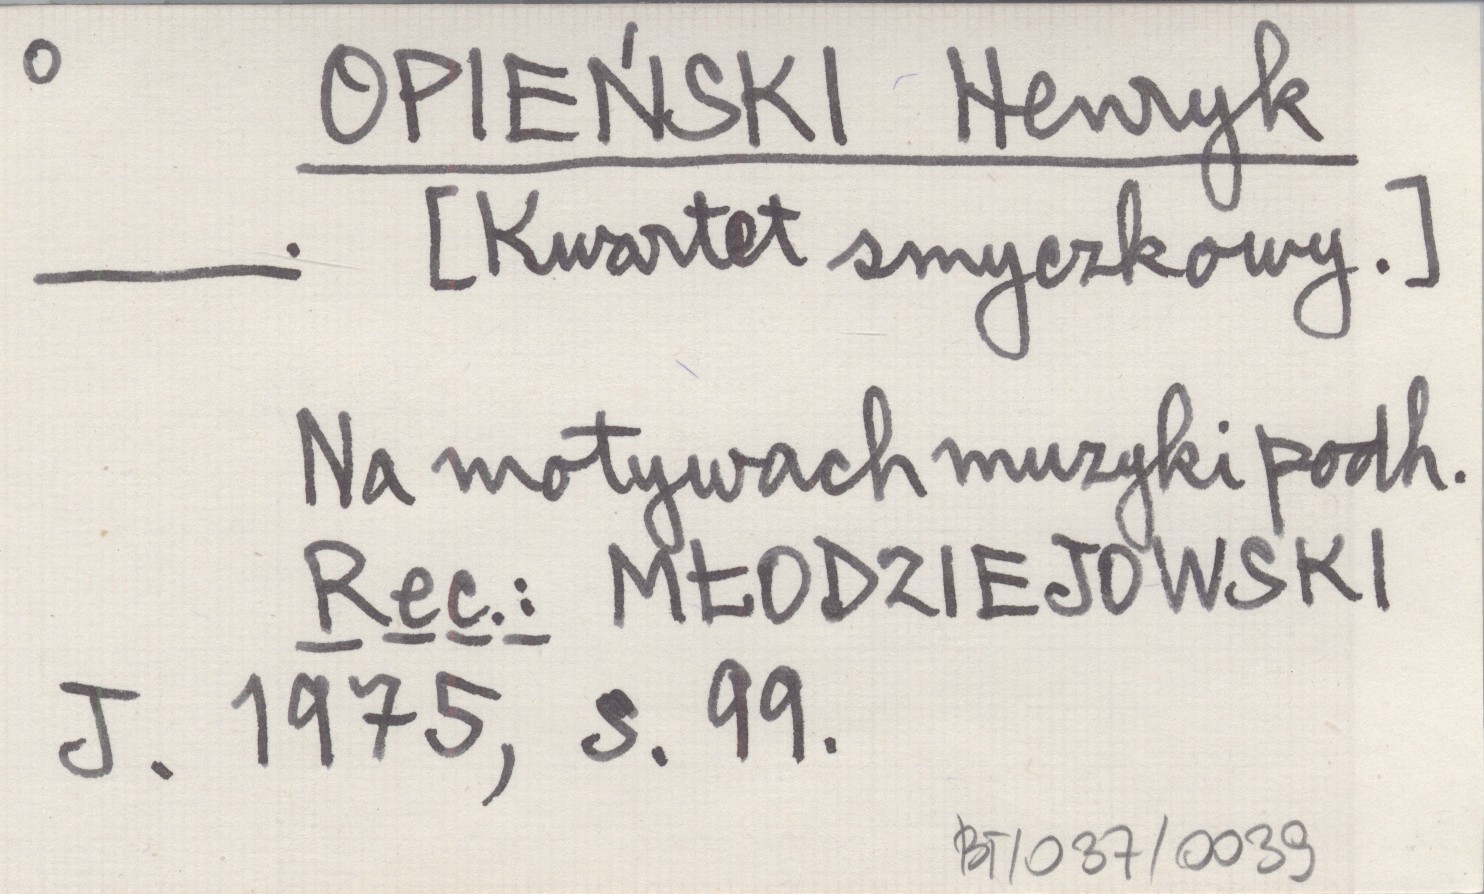 o OPIEŃSKI Henryk
____. [Kwartet smyczkowy.]
Na motywach muzyki podh.
Rec.: MŁODZIEJOWSKI
J. 1975, s. 99.
BT/037/0039